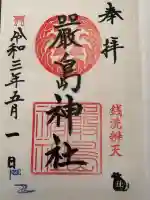 奉拝
嚴島神社
銭洗辨天
令和三年五月一日